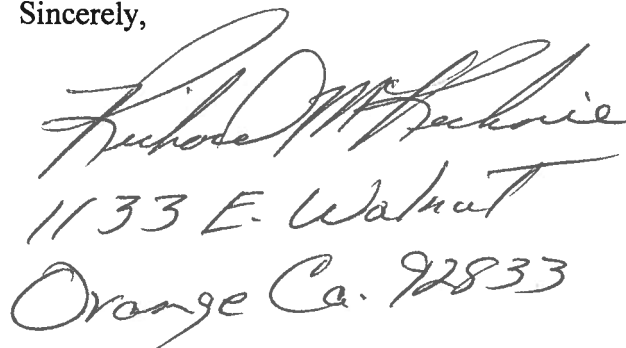 Sincerely,
Richard McKechnie
1133 E. Walnut
Orange Ca. 92833